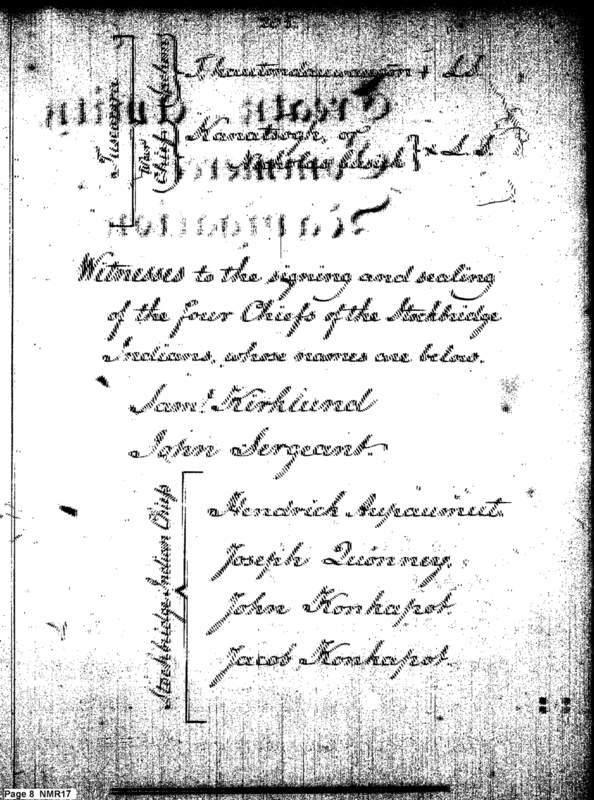 Tuscarora
War Chief Indian
Thautondauwangon + L.S.
Kanatsogh, or
Nicholas Cusick } x L.S.
Witnesses to the signing and sealing
of the four Chiefs of the Stockbridge
Indians, whose names are below.
Sam.l Kirklund
John Sergeant.
Stockbridge Indian Chiefs
Hendrick Aupaumut.
Joseph Quonney.
John Konkapot.
Jacob Konkapot.
Page 8 NMR17